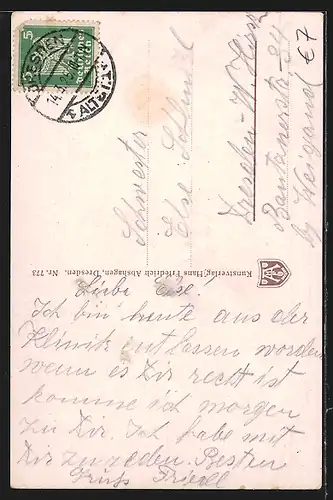 5
Deutsches
Reich
DRESDEN
ALTST.
Schwester
Else
Dresden-W. Hirsch
Bautznerstr. 34
b/ Weigand
€7
Kunstverlag Hans Friedrich Abshagen, Dresden. Nr. 773
Liebe Else!
Ich bin heute aus der
Klinik entlassen worden
wenn es Dir recht ist
komme ich morgen
zu Dir. Ich habe mit
Dir zu reden. Besten
Gruß Friedl